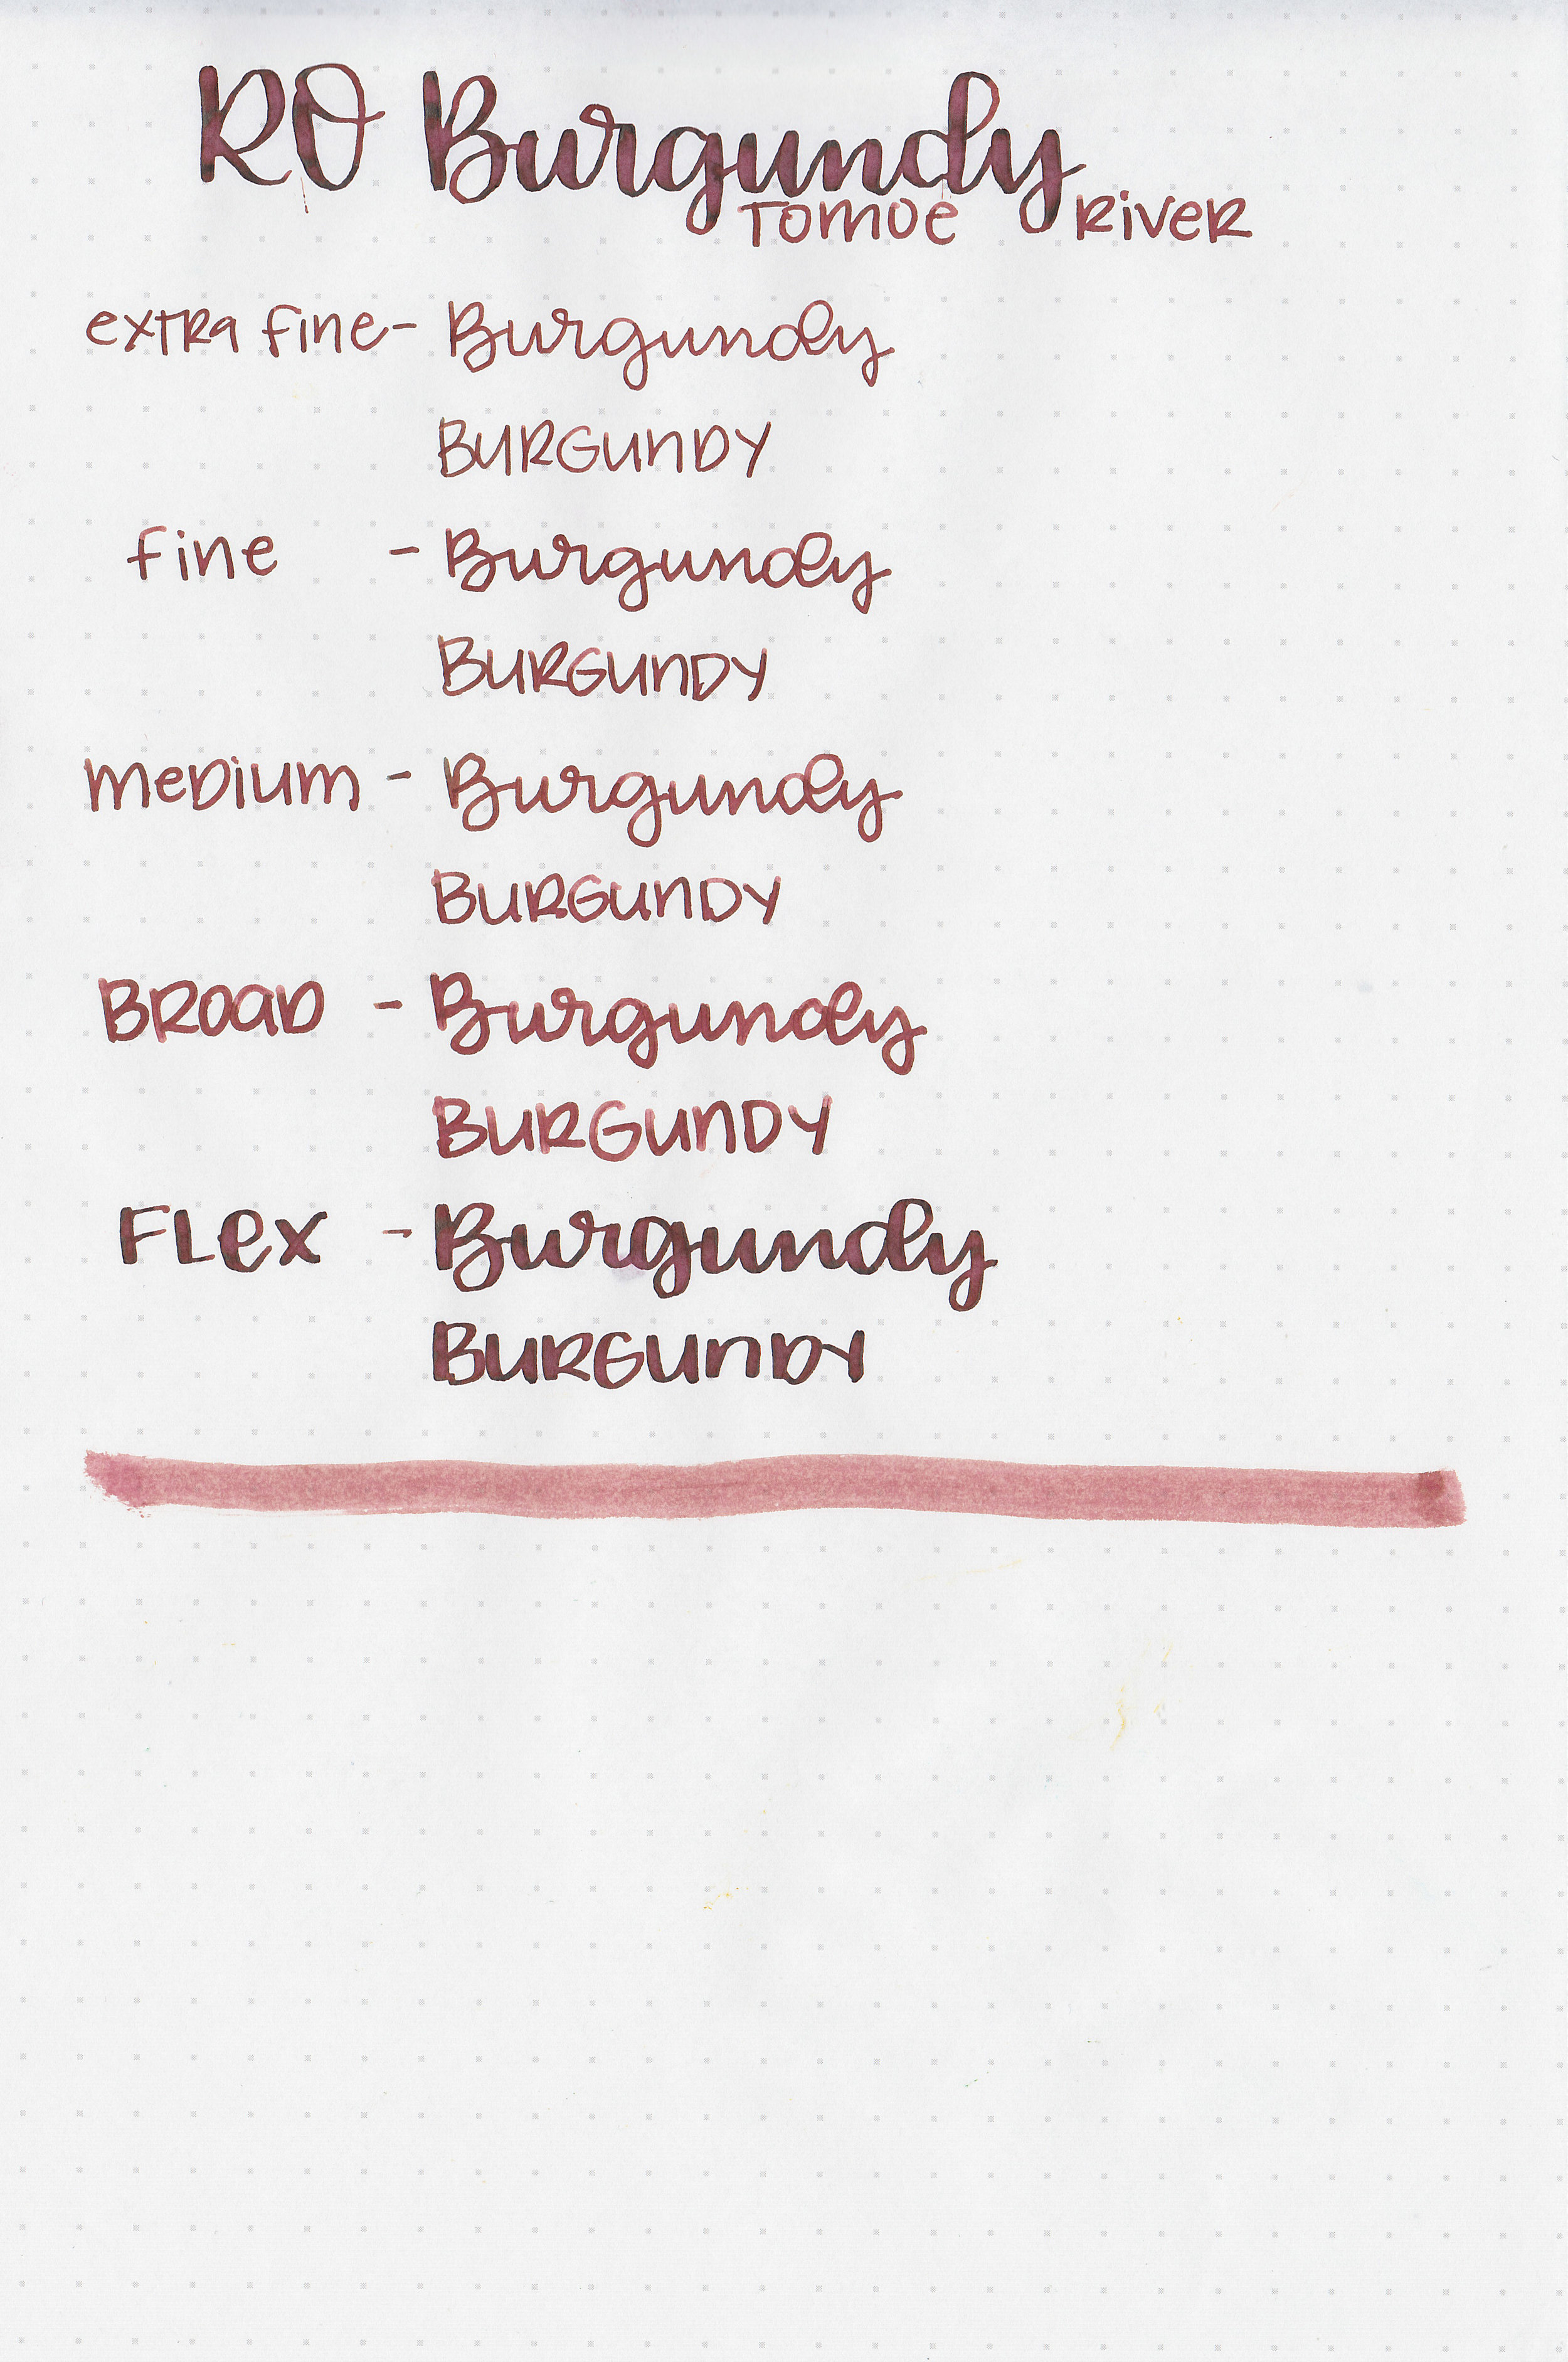 RO Burgundy
Tomoe River
extra fine - Burgundy
BURGUNDY
fine - Burgundy
BURGUNDY
medium - Burgundy
BURGUNDY
BROAD - Burgundy
BURGUNDY
FLex - Burgundy
BURGUNDY